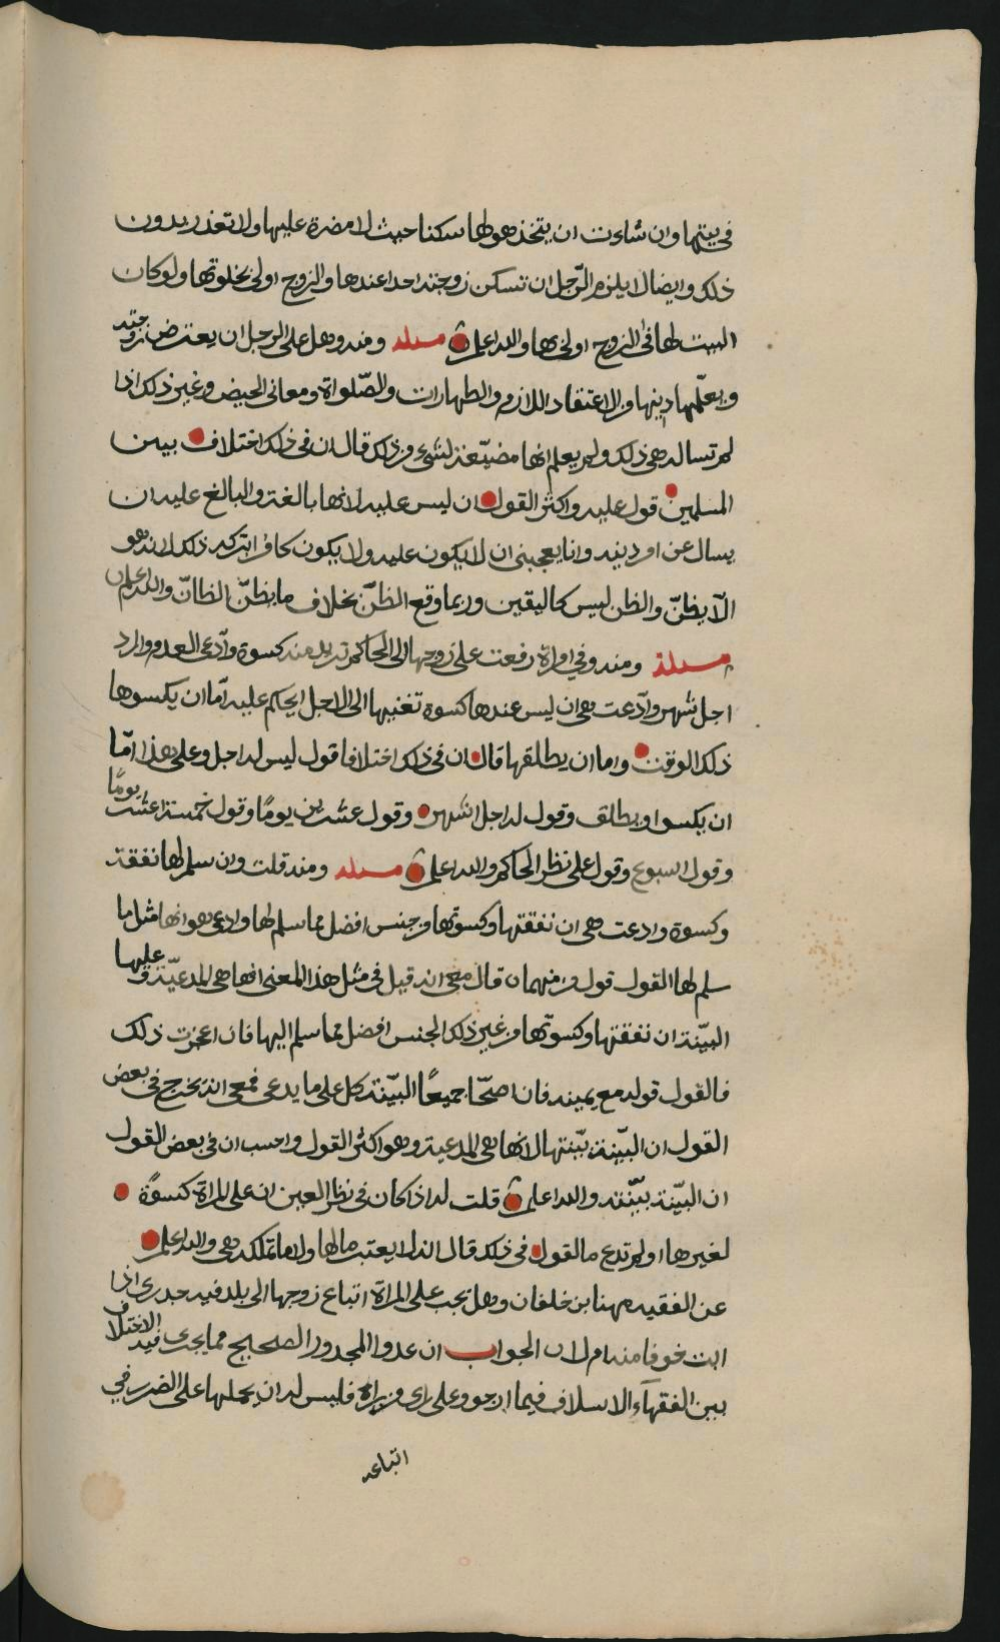 في بيتها وان شاءت ان يتخذ هو لها سكنا حيث لا مضرة عليها ولا تقدر بدون
ذلك وايضا لا يلزم الرّجل ان تسكن زوجته احدا عندها والزوج اولى بخلوتها ولو كان
البيت لها فالزوج اولى بها والله اعلم مسئلة ومنه وهل على الرجل ان يعترض زوجته
ويعلّمها دينها والاعتقاد اللازم والطهارات والصّلواة ومعاني الحيض وغير ذلك اذا
لم تساله هي ذلك ولم يعلم انها مضيّعة لشيء من ذلك قال ان في ذلك اختلاف بين
المسلمين قول عليه واكثر القول ان ليس عليه لانها بالغة والبالغ عليه ان
يسال عن امر دينه وانا يعجبني ان لا يكون عليه ولا يكون كافرا بتركه ذلك لانه هو
الّا يظنّ والظن ليس كاليقين وربما وقع الظنّ بخلاف ما يظنّ الظانّ والله اعلم
مسئلة ومنه وفي امراة رفعت على زوجها الى الحاكم تريد منه كسوة وادّعى العدم واراد
اجل شهر وادّعت هي ان ليس عندها كسوة تغنيها الى الاجل ايحكم عليه امّا ان يكسوها
ذلك الوقت واما ان يطلقها قال ان في ذلك اختلافا قول ليس له اجل وعلى هذا امّا
ان يكسوا ويطلق وقول له اجل شهر وقول عشرين يومًا وقول خمسة عشر يومًا
وقول اسبوع وقول على نظر الحاكم والله اعلم مسئلة ومنه قلت وان سلم لها نفقة
وكسوة وادعت هي ان نفقتها وكسوتها من جنس افضل مما سلم لها وادعى هو انها مثل ما
سلم لها القول قول من منهما قال معي انه قيل في مثل هذا المعنى انها هي المدعيّة وعليها
البيّنة ان نفقتها وكسوتها من غير ذلك الجنس افضل مما سلم اليها فان اعجزت ذلك
فالقول قوله مع يمينه فان اصحّا جميعًا البيّنة كل على ما يدعي فمعي انه يخرج في بعض
القول ان البيّنة بيّنتها لانها هي المدعية وهو اكثر القول واحسب ان في بعض القول
ان البيّنة بيّنته والله اعلم قلت له اذا كان في نظر العين ان على المراة كسوة
لغيرها او لم تدع ما القول في ذلك قال انه لا يعتبر مالها ولا ما تملكه هي والله اعلم
عن الفقيه مهنا بن خلفان وهل يجب على المراة اتباع زوجها الى بلد فيه جدري اذا
ابت خوفا منه ام لا الجواب ان عدوا المجدور الصحيح مما يجري فيه الاختلاف
بين الفقهاء الاسلاف فيما ارجو وعلى راي من يراه فليس له ان يحملها على الضرر في
اتباعه